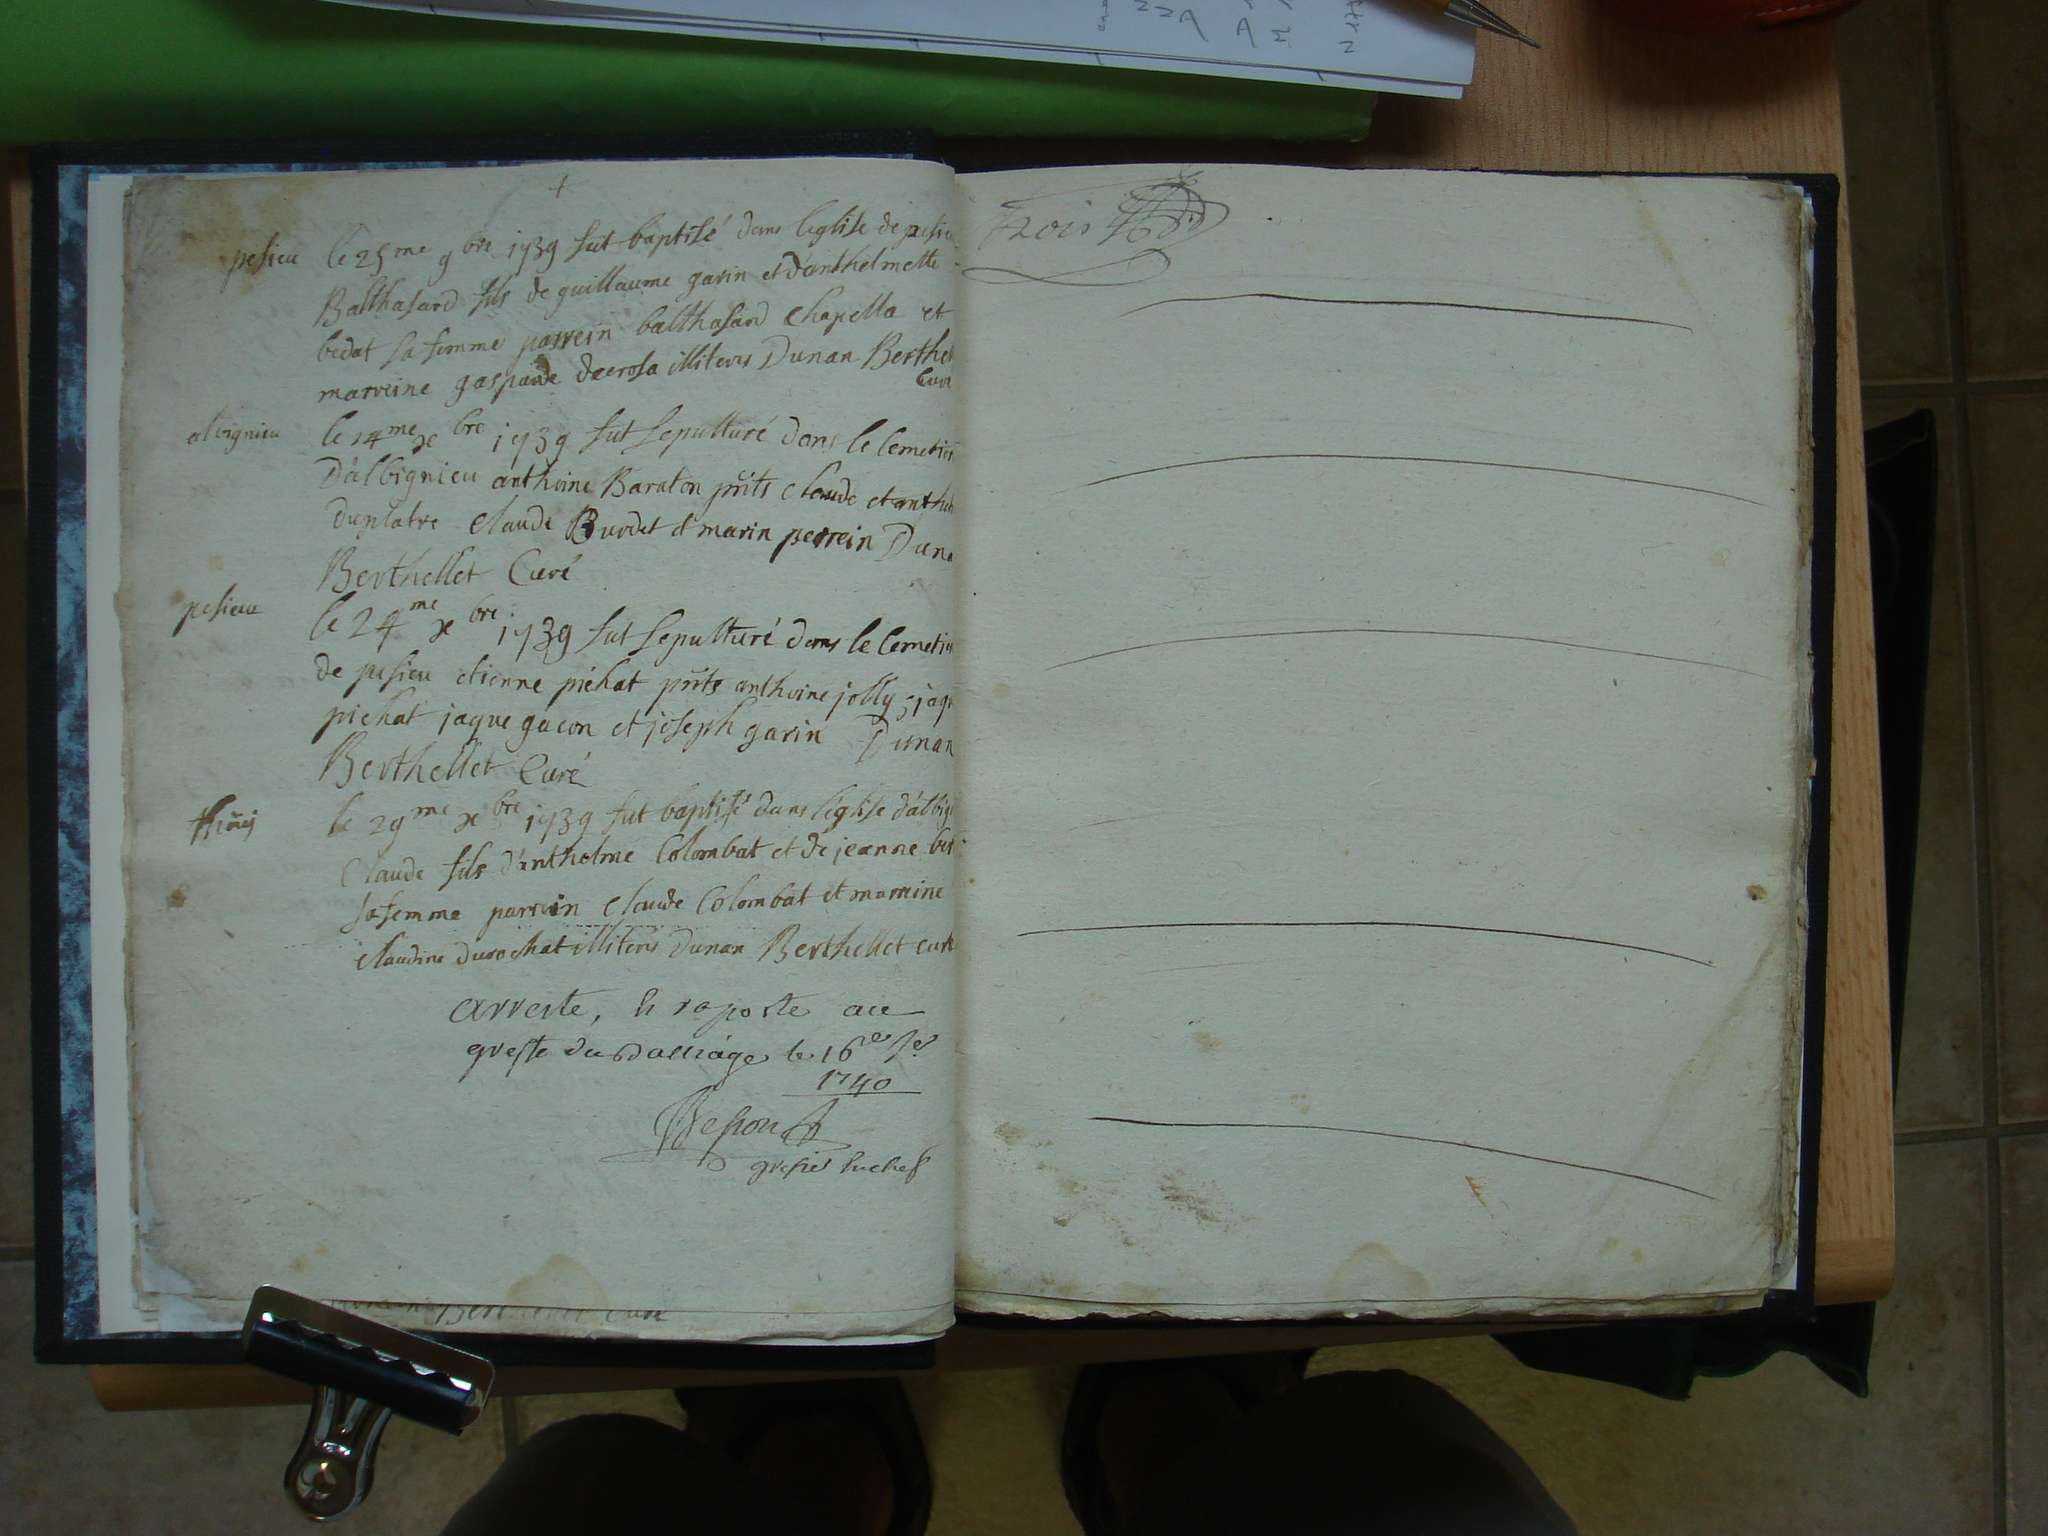 pesieu le 25me 9bre 1739 fut baptisé dans leglise de pesieu
Balthasard fils de guillaume garin et d'anthelmette
bedat sa femme parrein balthasard Chapella et
marreine gasparde decrosa illiteris Dunan Berthel
Curé
albignieu le 14me xbre 1739 fut sepulturé dans le Cemetier
D'albignieu anthoine Baraton pñts claude et
duplatre claude Burdet et marin perrein Dunan
Berthellet Curé
pesieu le 24me xbre 1739 fut sepulturé dans le Cemetier
de pesieu etienne pichat pñts anthoine jolly, jaque
pichat jaque gacon et joseph garin Dunan
Berthellet Curé
le 29me xbre 1739 fut baptisé dans l'église d'albig
Claude fils d'anthelme Colombat et de jeanne
sa femme parrein claude Colombat et marreine
claudine durochat illiteris Dunan Berthellet curé
arreste, et raporte au
greffe du Balliage le 16e
1740
Besson
grefier
Berthellet Curé
Trois